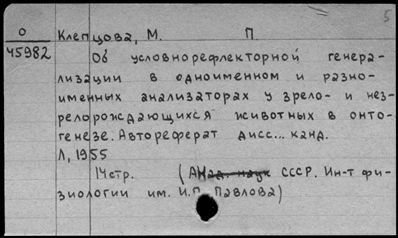 5
О
45982
Клепцова, М. П.
Об условнорефлекторной генера-
лизации в одноименном и разно-
именных анализаторах у зрело- и нез-
релорождающихся животных в онто-
генезе. Автореферат дисс... канд.
Л, 1955
14стр. (Акад. наук СССР. Ин-т фи-
зиологии им. И.П. Павлова)